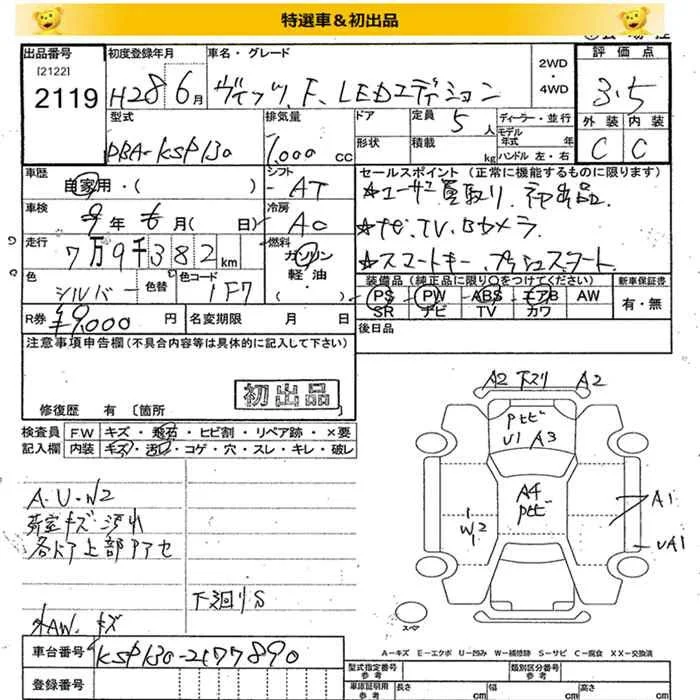 特選車＆初出品
出品番号
[2122]
2119
初度登録年月
H28 6月
車名・グレード
ヴィッツ、F、LEDエディション
2WD
・
4WD
評価点
3.5
外装 内装
C C
型式
DBA-KSP130
排気量
1,000 cc
ドア
形状
定員 5人
積載 kg
ディーラー・並行
モデル年式 年
ハンドル 左・右
車歴
自家用・( )
シフト
AT
セールスポイント(正常に機能するものに限ります)
★ユーザー買取り、初出品、
★ナビ、TV、Bカメラ、
★スマートキー、プッシュスタート、
車検
9年6月(日)
冷房
AC
走行
7万9千382km
燃料
ガソリン
軽油・( )
色
シルバー
色替
色コード
1F7
装備品(純正品に限り○をつけてください)
PS PW ABS エアB AW
SR ナビ TV カワ
新車保証書
有・無
R券 ¥9,000 円
名変期限 月 日
後日品
注意事項申告欄(不具合内容等は具体的に記入して下さい)
初出品
修復歴 有〔箇所
検査員記入欄
FW キズ・飛石・ヒビ割・リペア跡・×要
内装 キズ・汚れ・コゲ・穴・スレ・キレ・破レ
A・U・W2
荷室キズ・汚れ
各ドア上部アセ
下廻りS
外AW、キズ
A2 下スリ A2
U1 A3
A4
W2
A1
UA1
スペア
A－キズ E－エクボ U－凹み W－補修跡 S－サビ C－腐食 XX－交換済
車台番号 KSP130-2177890
登録番号
型式指定番号 参考
類別区分番号 参考
車庫証明用 参考
長さ cm
幅 cm
高さ cm